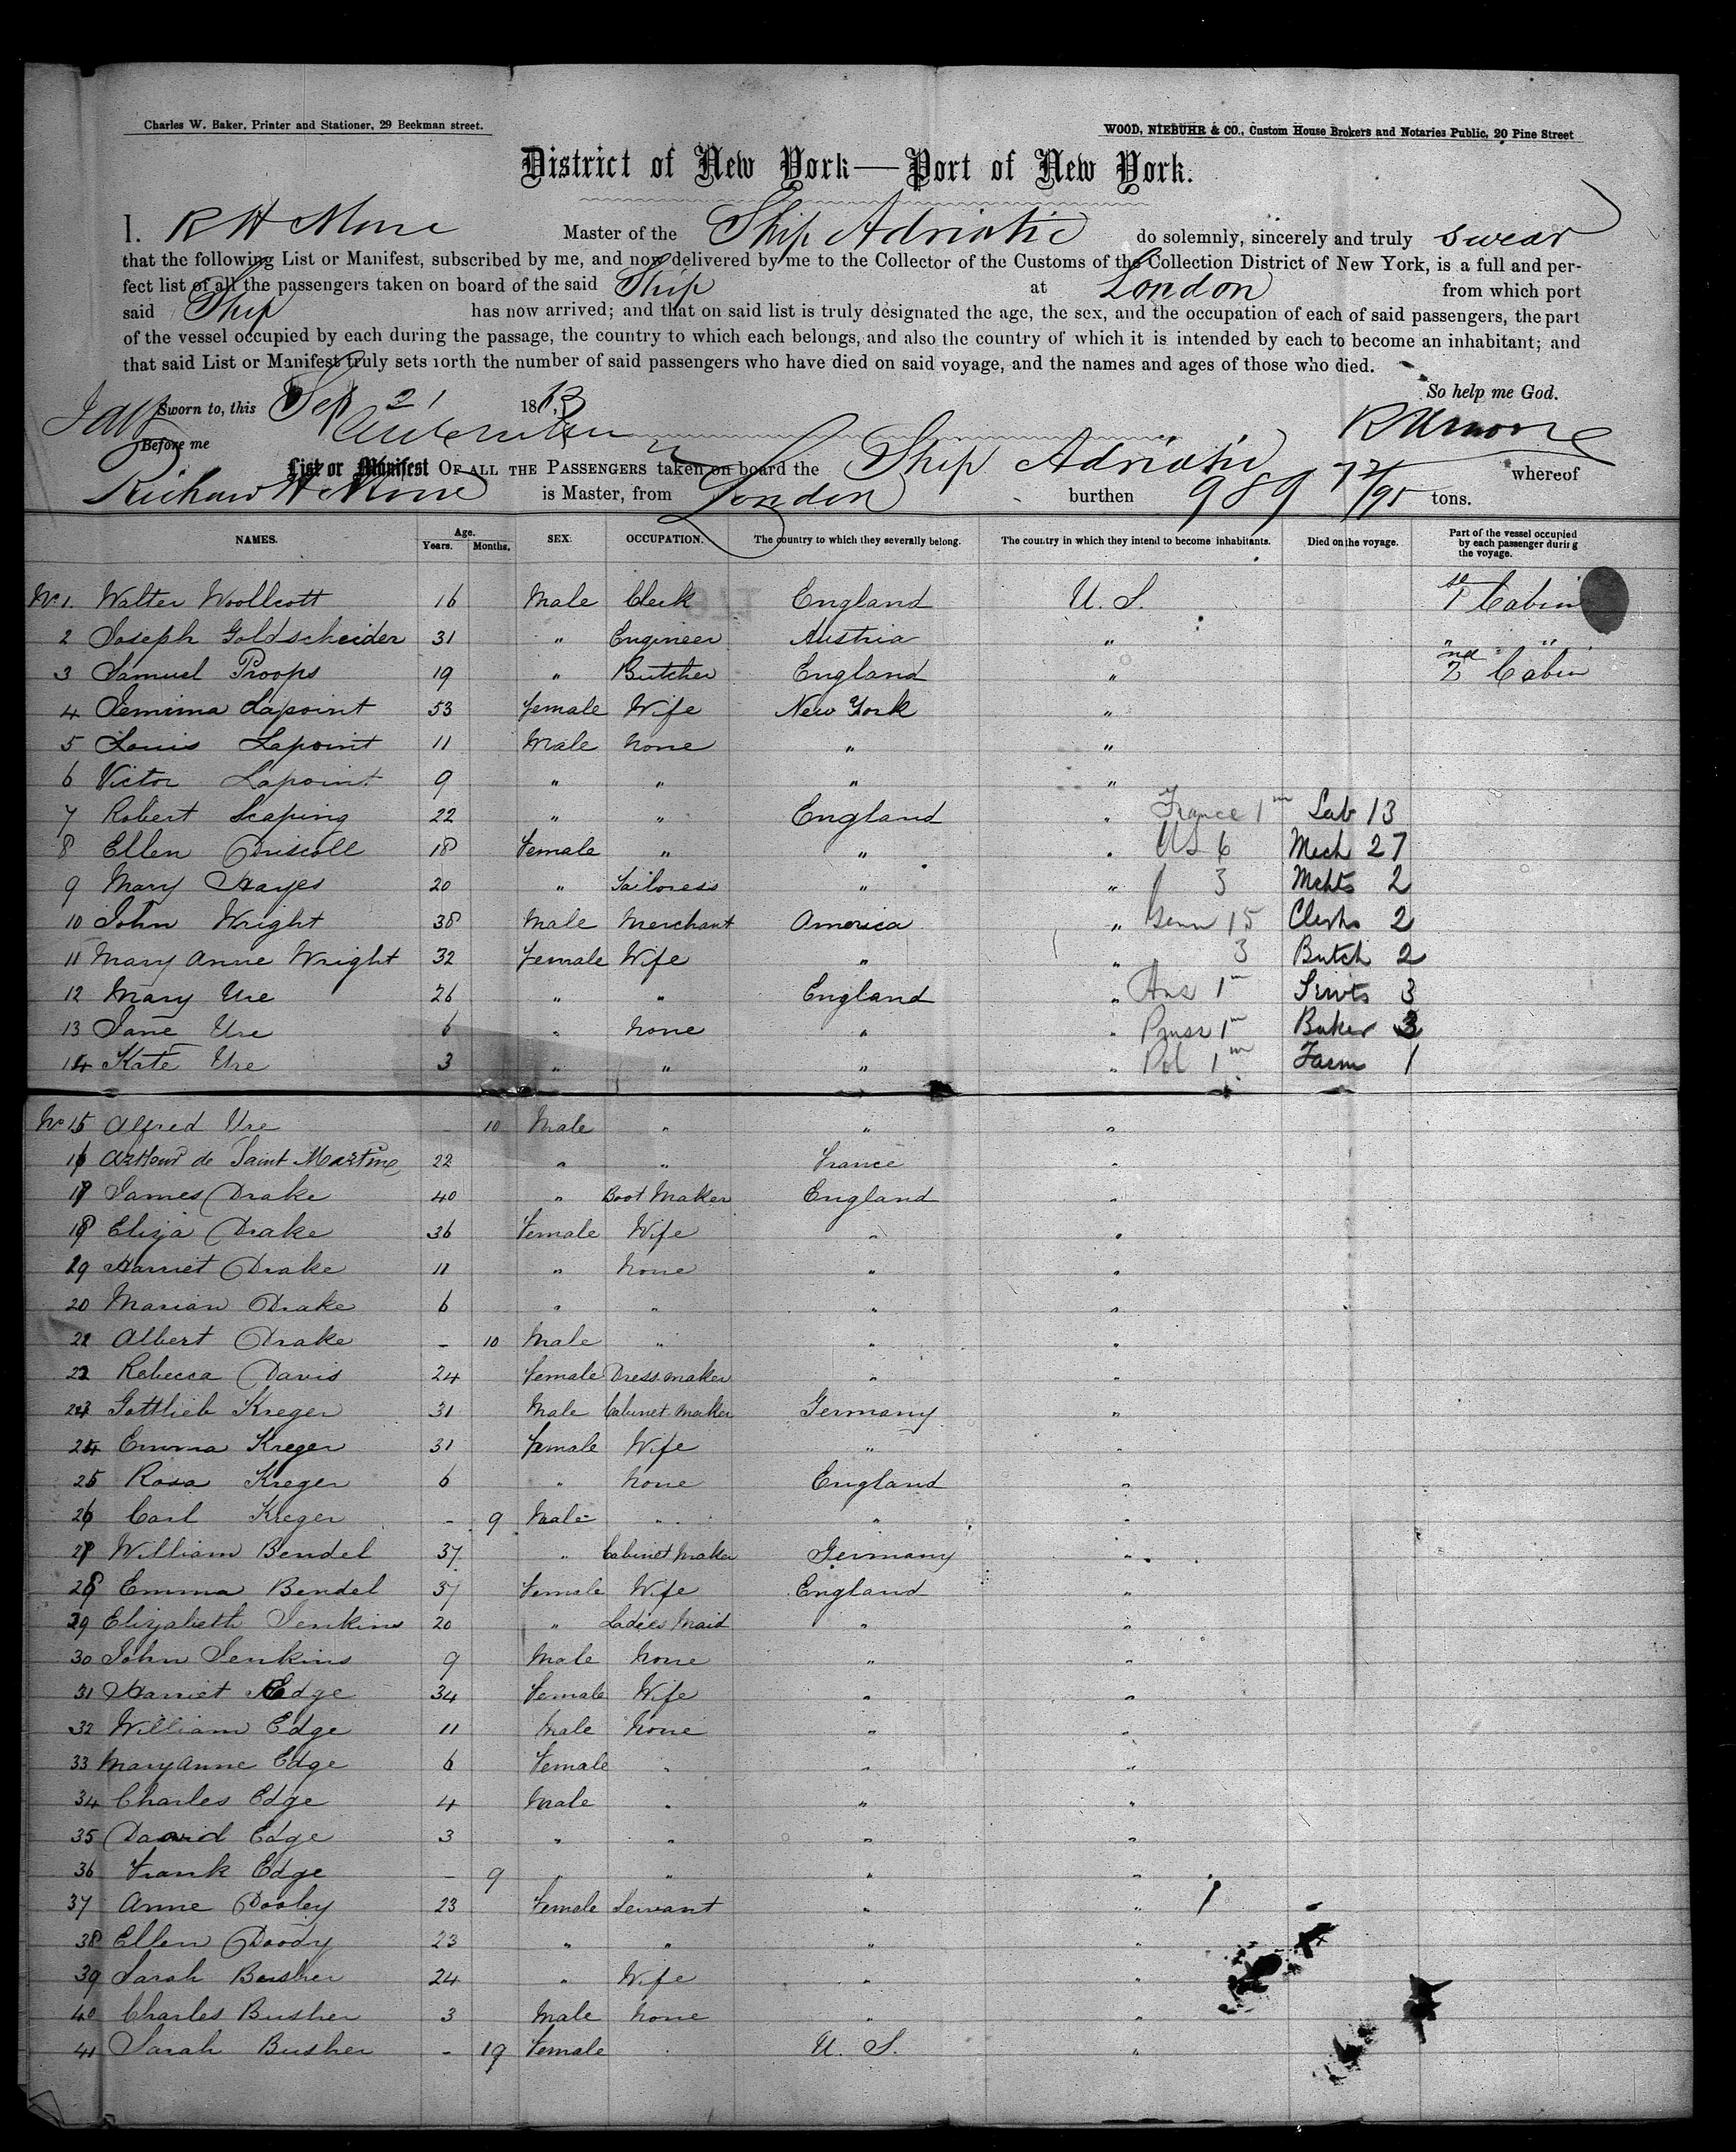 Charles W. Baker, Printer and Stationer, 29 Beekman street.
WOOD, NIEBUHR & CO., Custom House Brokers and Notaries Public, 20 Pine Street
District of New York—Port of New York.
I. R H Mone Master of the Ship Adriatic do solemnly, sincerely and truly swear
that the following List or Manifest, subscribed by me, and now delivered by me to the Collector of the Customs of the Collection District of New York, is a full and per-
fect list of all the passengers taken on board of the said Ship at London from which port
said Ship has now arrived; and that on said list is truly designated the age, the sex, and the occupation of each of said passengers, the part
of the vessel occupied by each during the passage, the country to which each belongs, and also the country of which it is intended by each to become an inhabitant; and
that said List or Manifest truly sets forth the number of said passengers who have died on said voyage, and the names and ages of those who died.
So help me God.
Sworn to, this Sep 21 1863
Before me
List or Manifest OF ALL THE PASSENGERS taken on board the Ship Adriatic whereof
Richard H Mone is Master, from London burthen 989 72/95 tons.
NAMES. Age. Years. Months. SEX. OCCUPATION. The country to which they severally belong. The country in which they intend to become inhabitants. Died on the voyage. Part of the vessel occupied by each passenger during the voyage.
No 1. Walter Woollcott 16 Male Clerk England U. S. 1st Cabin
2 Joseph Goldscheider 31 " Engineer Austria " " "
3 Samuel Proops 19 " Butcher England " 2nd Cabin
4 Jemima Lapoint 53 Female Wife New York "
5 Louis Lapoint 11 Male None " "
6 Victor Lapoint 9 " " " "
7 Robert Scaping 22 " " England " France 1m Lab 13
8 Ellen Driscoll 18 Female " " " US 6 Mech 27
9 Mary Hayes 20 " Tailoress " " 3 Mchts 2
10 John Wright 38 Male Merchant America " Germ 15 Clerks 2
11 Mary Anne Wright 32 Female Wife " " 3 Butch 2
12 Mary Ure 26 " " England " Aus 1m Servts 3
13 Jane Ure 6 " None " " Pruss 1m Baker 3
14 Kate Ure 3 " " " " Pol 1m Farm 1
No 15 Alfred Ure - 10 Male " " "
16 Arthur de Saint Martine 22 " " France "
17 James Drake 40 " Boot Maker England "
18 Eliza Drake 36 Female Wife " "
19 Harriet Drake 11 " None " "
20 Marian Drake 6 " " " "
21 Albert Drake - 10 Male " " "
22 Rebecca Davis 24 Female Dressmaker " "
23 Gottlieb Kreger 31 Male Cabinet Maker Germany "
24 Emma Kreger 31 Female Wife " "
25 Rosa Kreger 6 " None England "
26 Carl Kreger - 9 Male " " "
27 William Bendel 37 " Cabinet Maker Germany "
28 Emma Bendel 37 Female Wife England "
29 Elizabeth Jenkins 20 " Ladies Maid " "
30 John Jenkins 9 Male None " "
31 Harriet Edge 34 Female Wife " "
32 William Edge 11 Male None " "
33 Mary Anne Edge 6 Female " " "
34 Charles Edge 4 Male " " "
35 David Edge 3 " " " "
36 Frank Edge - 9 " " " "
37 Anne Dooley 23 Female Servant " "
38 Ellen Doody 23 " " " "
39 Sarah Busher 24 " Wife " "
40 Charles Busher 3 Male None " "
41 Sarah Busher - 19 Female " U. S. "